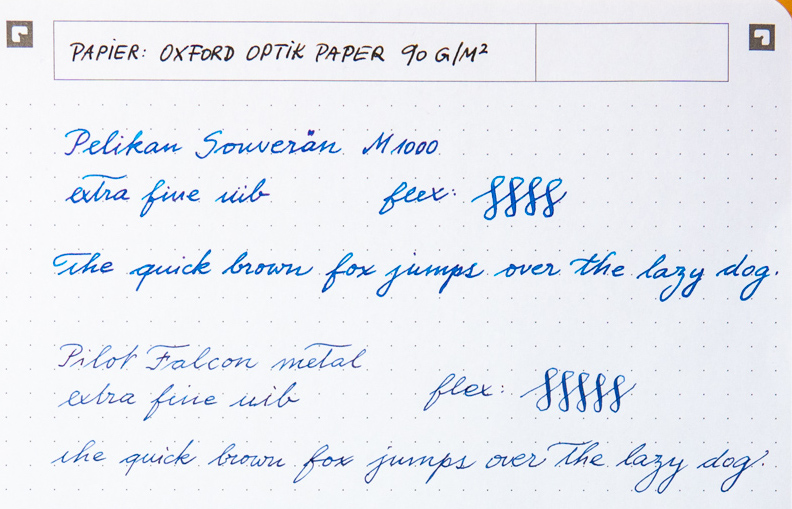 PAPIER: OXFORD OPTIK PAPER 90 G/M²
Pelikan Souverän M1000
extra fine nib flex:
The quick brown fox jumps over the lazy dog.
Pilot Falcon metal
extra fine nib flex:
the quick brown fox jumps over the lazy dog.